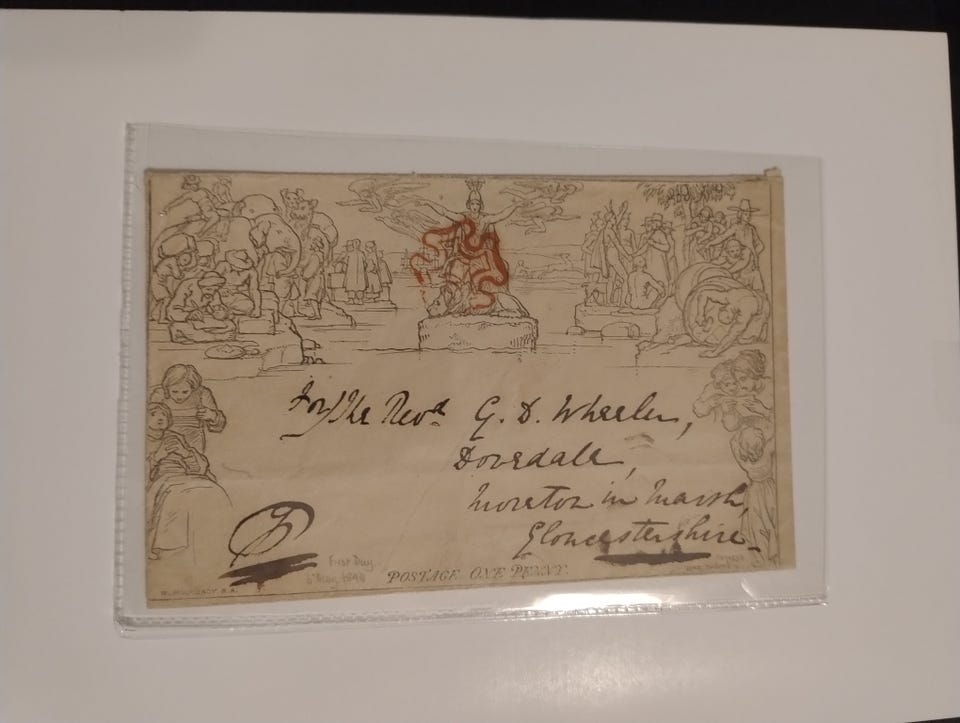 For/The Revd. G. D. Wheeler,
Dovedale,
Moreton in Marsh,
Gloucestershire
First Day
6 May 1840
POSTAGE ONE PENNY.
R.A.